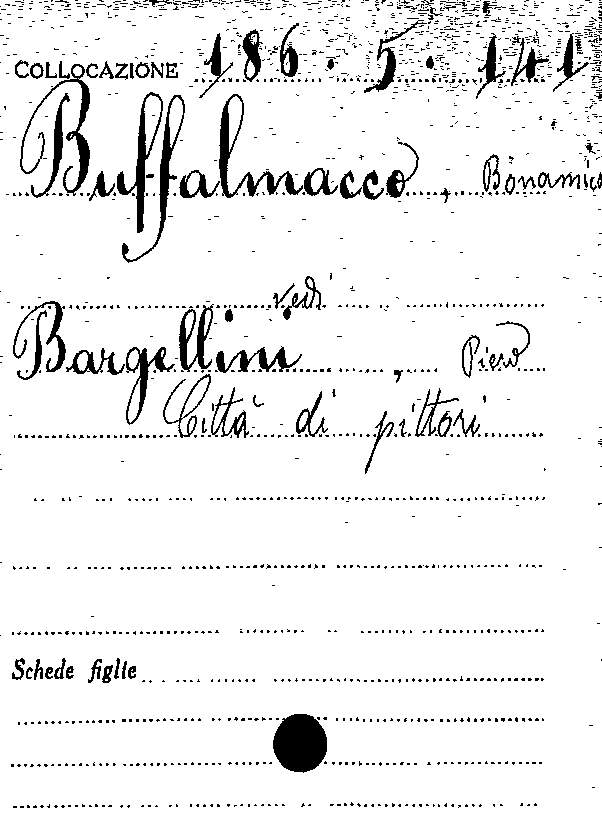 COLLOCAZIONE 186.5.141
Buffalmacco, Bonamico
vedi
Bargellini, Piero
Città di pittori
Schede figlie